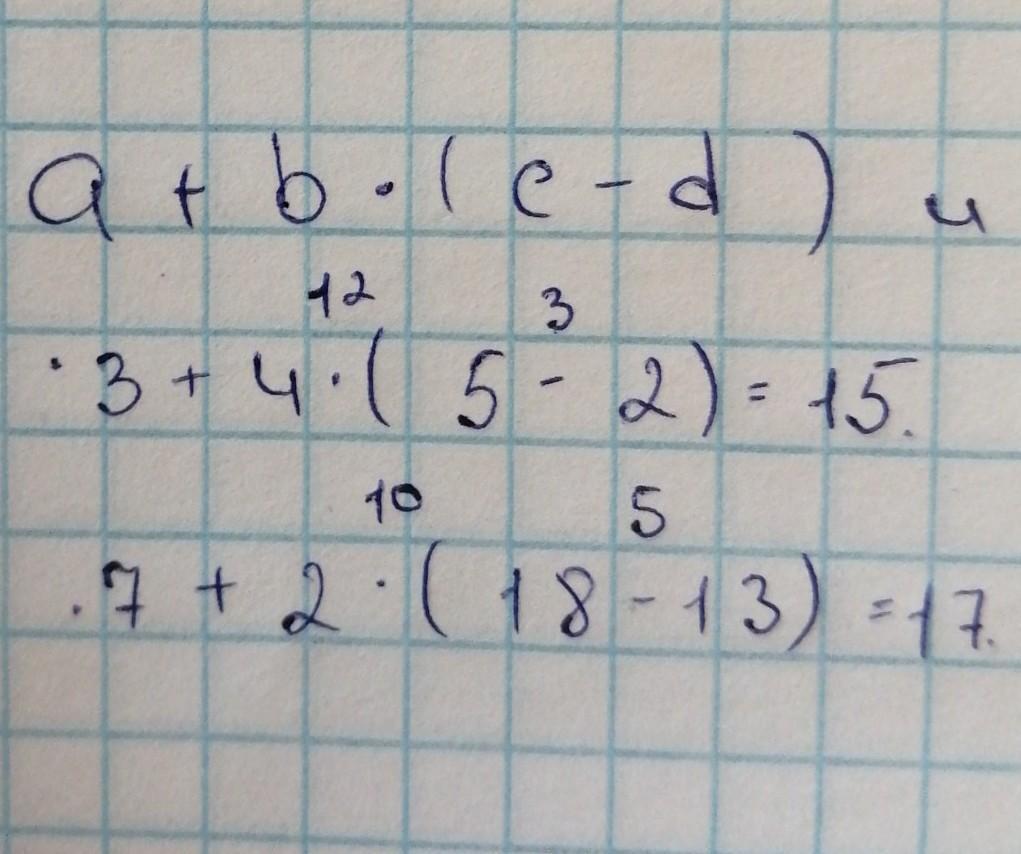 a + b · ( c - d ) и
12 3
· 3 + 4 · ( 5 - 2 ) = 15.
10 5
. 7 + 2 · ( 18 - 13 ) = 17.